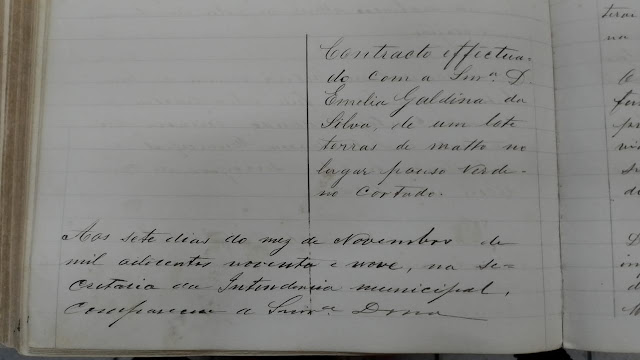 Contracto effectua-
do com a Snrª D.
Emelia Galdina da
Silva, de um lote
terras de matto no
lugar pouso Verde-
no Cortado.
Aos sete dias do mez de Novembro de
mil oitocentos noventa e nove, na se-
cretaria da Intendencia municipal,
compareceu a Snrª Dona